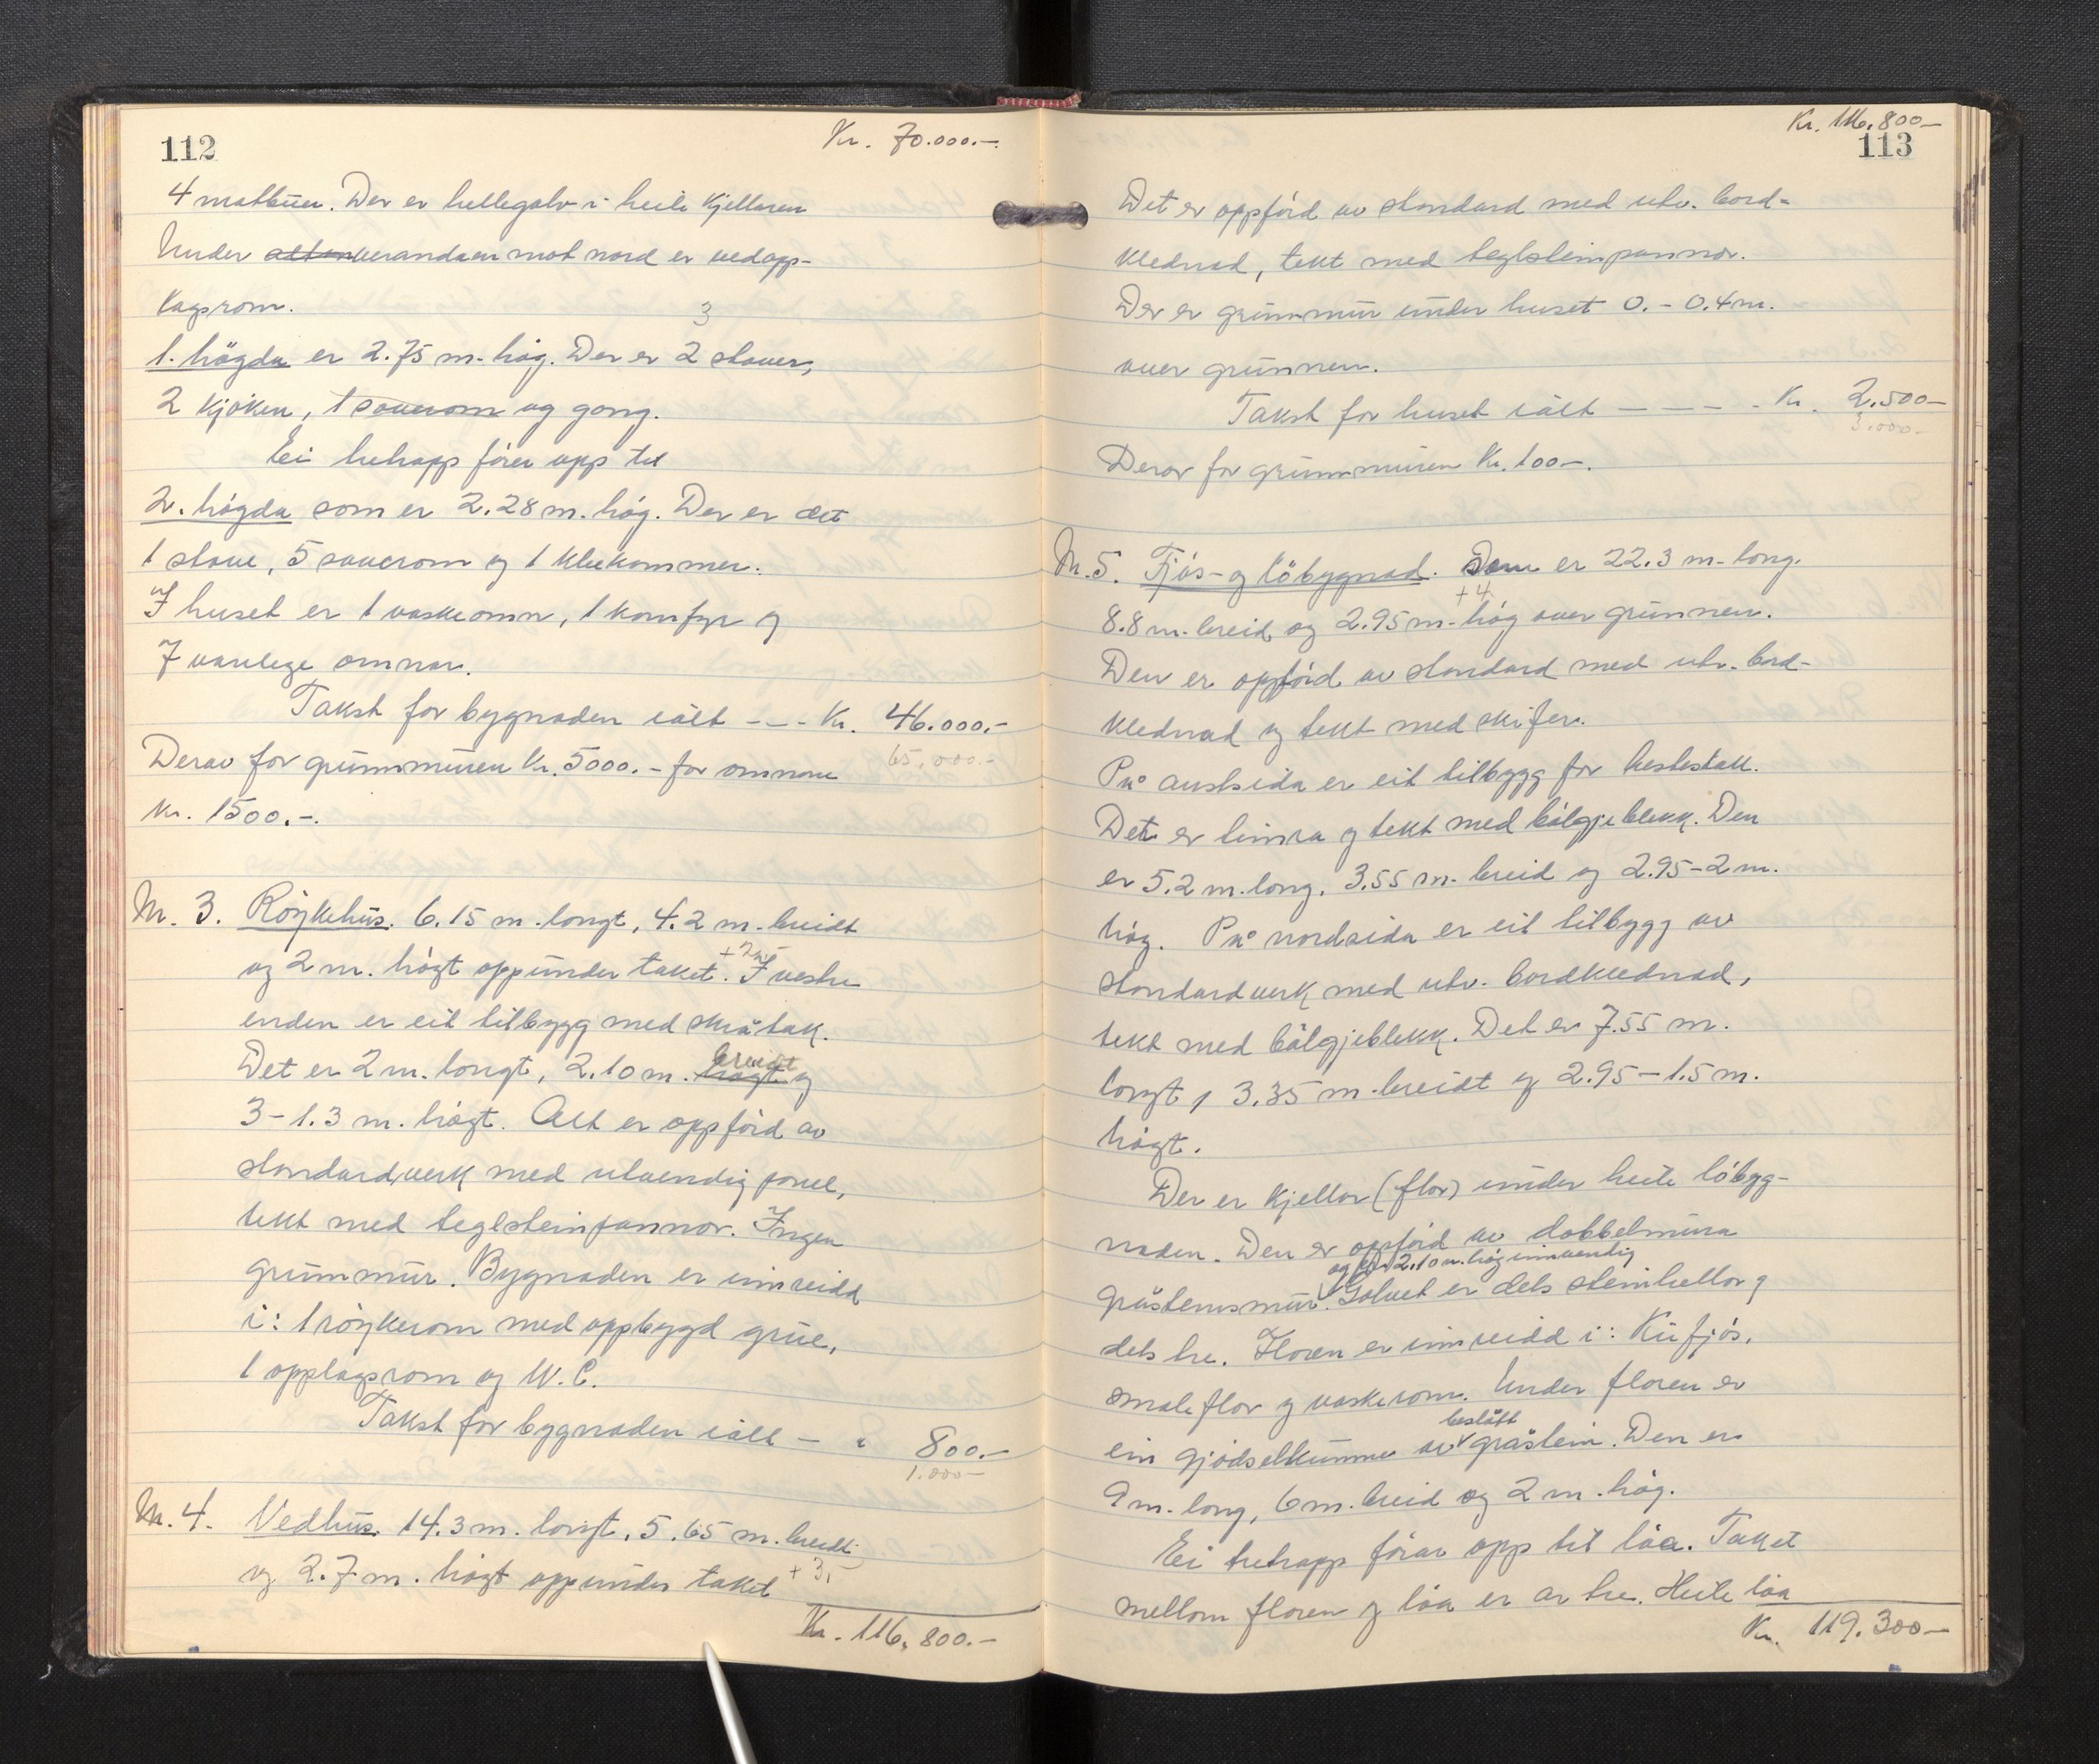 112
Kr. 70.000.-
4 matbuer. Der er hellegolv i heile Kjellaren
Under altan verandaen mot nord er vedopp-
lagsrom.
3
1. högda er 2.75 m. hög. Der er 2 stover,
2 kjöken, 1 soverom og gong.
Ei tretrapp förer opp til
2. högda som er 2.28 m. hög. Der er det
1 stove, 5 soverom og 1 klekommer.
I huset er 1 vaskeomn, 1 komfyr og
7 vanlege omnar.
Takst for bygnaden ialt --- Kr. 46.000.-
65,000.-
Derav for grunnmuren Kr. 5000.- for omnane
Kr. 1500.-.
Nr. 3. Röykehus. 6.15 m. longt, 4.2 m. breidt
+2
og 2 m. högt oppunder taket. I vestre
enden er eit tilbygg med skråtak.
breidt
Det er 2 m. longt, 2.10 m. högt og
3-1.3 m. högt. Alt er oppförd av
standardverk med utvendig panel,
tekt med teglsteinpannor. Ingen
grunnmur. Bygnaden er innreidd
i: 1 röykerom med oppbygd grue,
1 opplagsrom og W.C.
Takst for bygnaden ialt - " 800.-
1.000-
Nr. 4. Vedhus. 14.3 m. longt, 5.65 m. breidt
og 2.7 m. högt oppunder taket +3,-
Kr. 116,800.-
Kr. 116,800-
113
Det er oppförd av standard med utv. bord-
klednad, tekt med teglsteinpannor.
Der er grunnmur under huset 0.- 0.4 m.
over grunnen.
Takst for huset ialt ---- Kr. 2.500-
3.000-
Derav for grunnmuren Kr. 100-.
Nr. 5. Fjös- og löbygnad. Den er 22.3 m. long.
+4
8.8 m. breid og 2.95 m. hög over grunnen.
Den er oppförd av standard med utv. bord-
klednad og tekt med skifer.
På austsida er eit tilbygg for hestestall.
Det er limra og tekt med bålgjeblekk. Den
er 5.2 m. long. 3.55 m. breid og 2.95-2 m.
hög. På nordsida er eit tilbygg av
standardverk med utv. bordklednad,
tekt med bålgjeblekk. Det er 7.55 m.
longt, 3.35 m. breidt og 2.95-1.5 m.
högt.
Der er kjellar (flor) under heile löbyg-
naden. Den er oppförd av dobbelmura
og er 2.10 m. hög innvendig
gråsteinsmur. Golvet er dels steinhellor og
dels tre. Floren er innreidd i: Kufjös,
smaleflor og vaskerom. Under floren er
beslått
ein gjödselkumme av gråstein. Den er
9 m. long, 6 m. breid og 2 m. hög.
Ei tretrapp förar opp til löa. Taket
mellom floren og löa er av tre. Heile löa
Kr. 119.300-